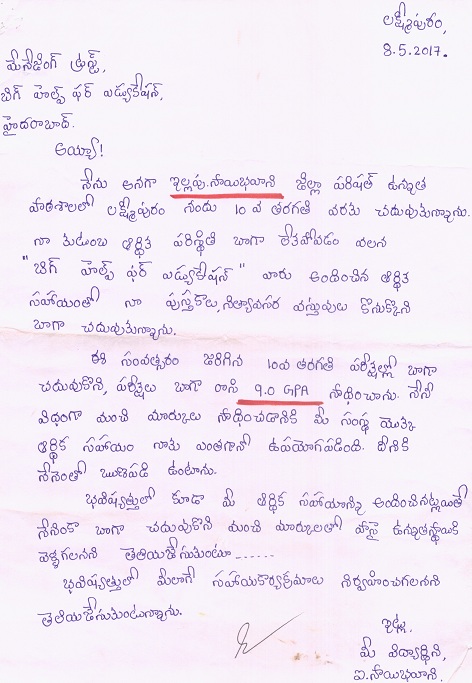 లక్ష్మీపురం,
8.5.2017.
మేనేజింగ్ ట్రస్ట్,
బిగ్ హెల్ప్ ఫర్ ఎడ్యుకేషన్,
హైదరాబాద్.
అయ్యా!
నేను అనగా ఇల్లపు.సాయిభవాని జిల్లా పరిషత్ ఉన్నత
పాఠశాలలో లక్ష్మీపురం నందు 10 వ తరగతి వరకు చదువుతున్నాను.
నా కుటుంబ ఆర్థిక పరిస్థితి బాగా లేకపోవడం వలన
"బిగ్ హెల్ప్ ఫర్ ఎడ్యుకేషన్" వారు అందించిన ఆర్థిక
సహాయంతో నా పుస్తకాలు, నిత్యావసర వస్తువులు కొనుక్కొని
బాగా చదువుతున్నాను.
ఈ సంవత్సరం జరిగిన 10వ తరగతి పరీక్షల్లో బాగా
చదువుకొని, పరీక్షలు బాగా రాసి 9.0 GPA సాధించాను. నేనీ
విధంగా మంచి మార్కులు సాధించడానికి మీ సంస్థ యొక్క
ఆర్థిక సహాయం నాకు ఎంతగానో ఉపయోగపడింది. దీనికి
నేనెంతో ఋణపడి ఉంటాను.
భవిష్యత్తులో కూడా మీ ఆర్థిక సహాయాన్ని అందించినట్లయితే
నేనింకా బాగా చదువుకొని మంచి మార్కులతో పాసై ఉన్నతస్థాయికి
వెళ్ళగలనని తెలియజేసుకుంటూ ......
భవిష్యత్తులో మీలాగే సహాయకార్యక్రమాలు నిర్వహించగలనని
తెలియజేసుకుంటున్నాను.
ఇట్లు,
మీ విద్యార్థిని,
ఐ.సాయిభవాని.